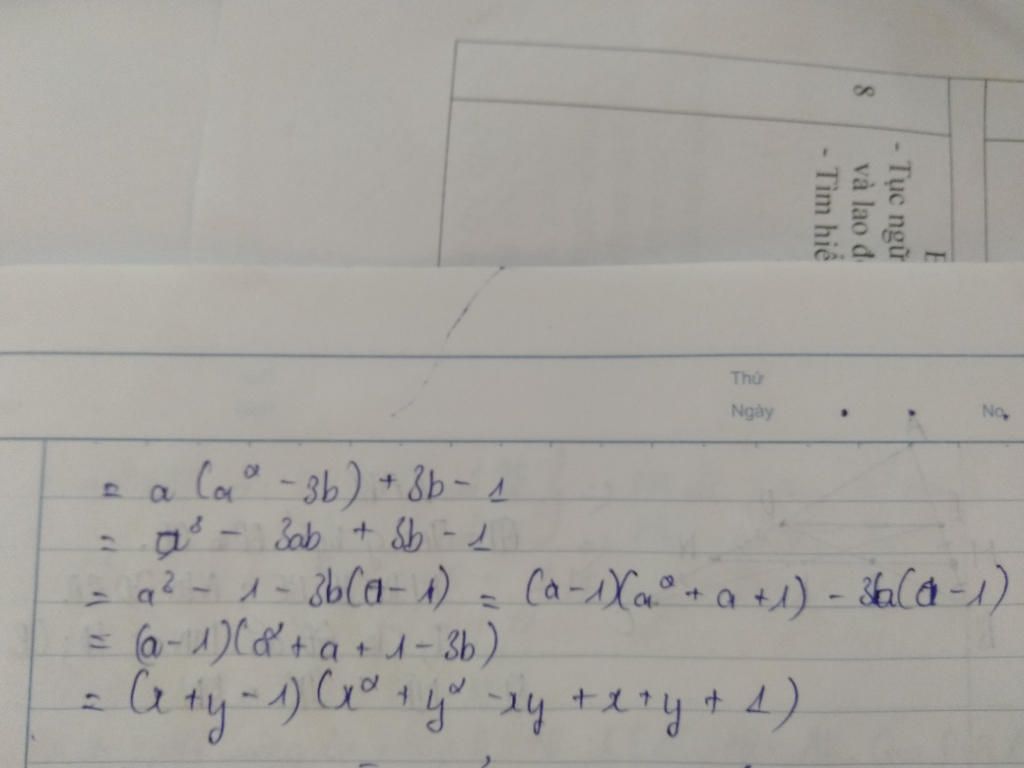 8
- Tục ngữ
và lao đ
- Tìm hiể
Thứ
Ngày
No.
= a (a² - 3b) + 3b - 1
= a³ - 3ab + 3b - 1
= a³ - 1 - 3b(a - 1) = (a - 1)(a² + a + 1) - 3b(a - 1)
= (a - 1)(a² + a + 1 - 3b)
= (x + y - 1)(x² + y² - xy + x + y + 1)